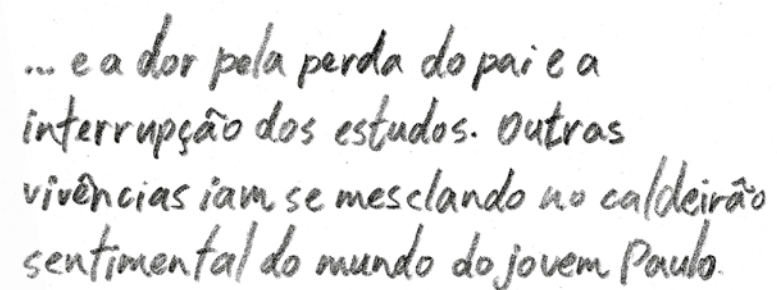 ... e a dor pela perda do pai e a
interrupção dos estudos. Outras
vivências iam se mesclando no caldeirão
sentimental do mundo do jovem Paulo.